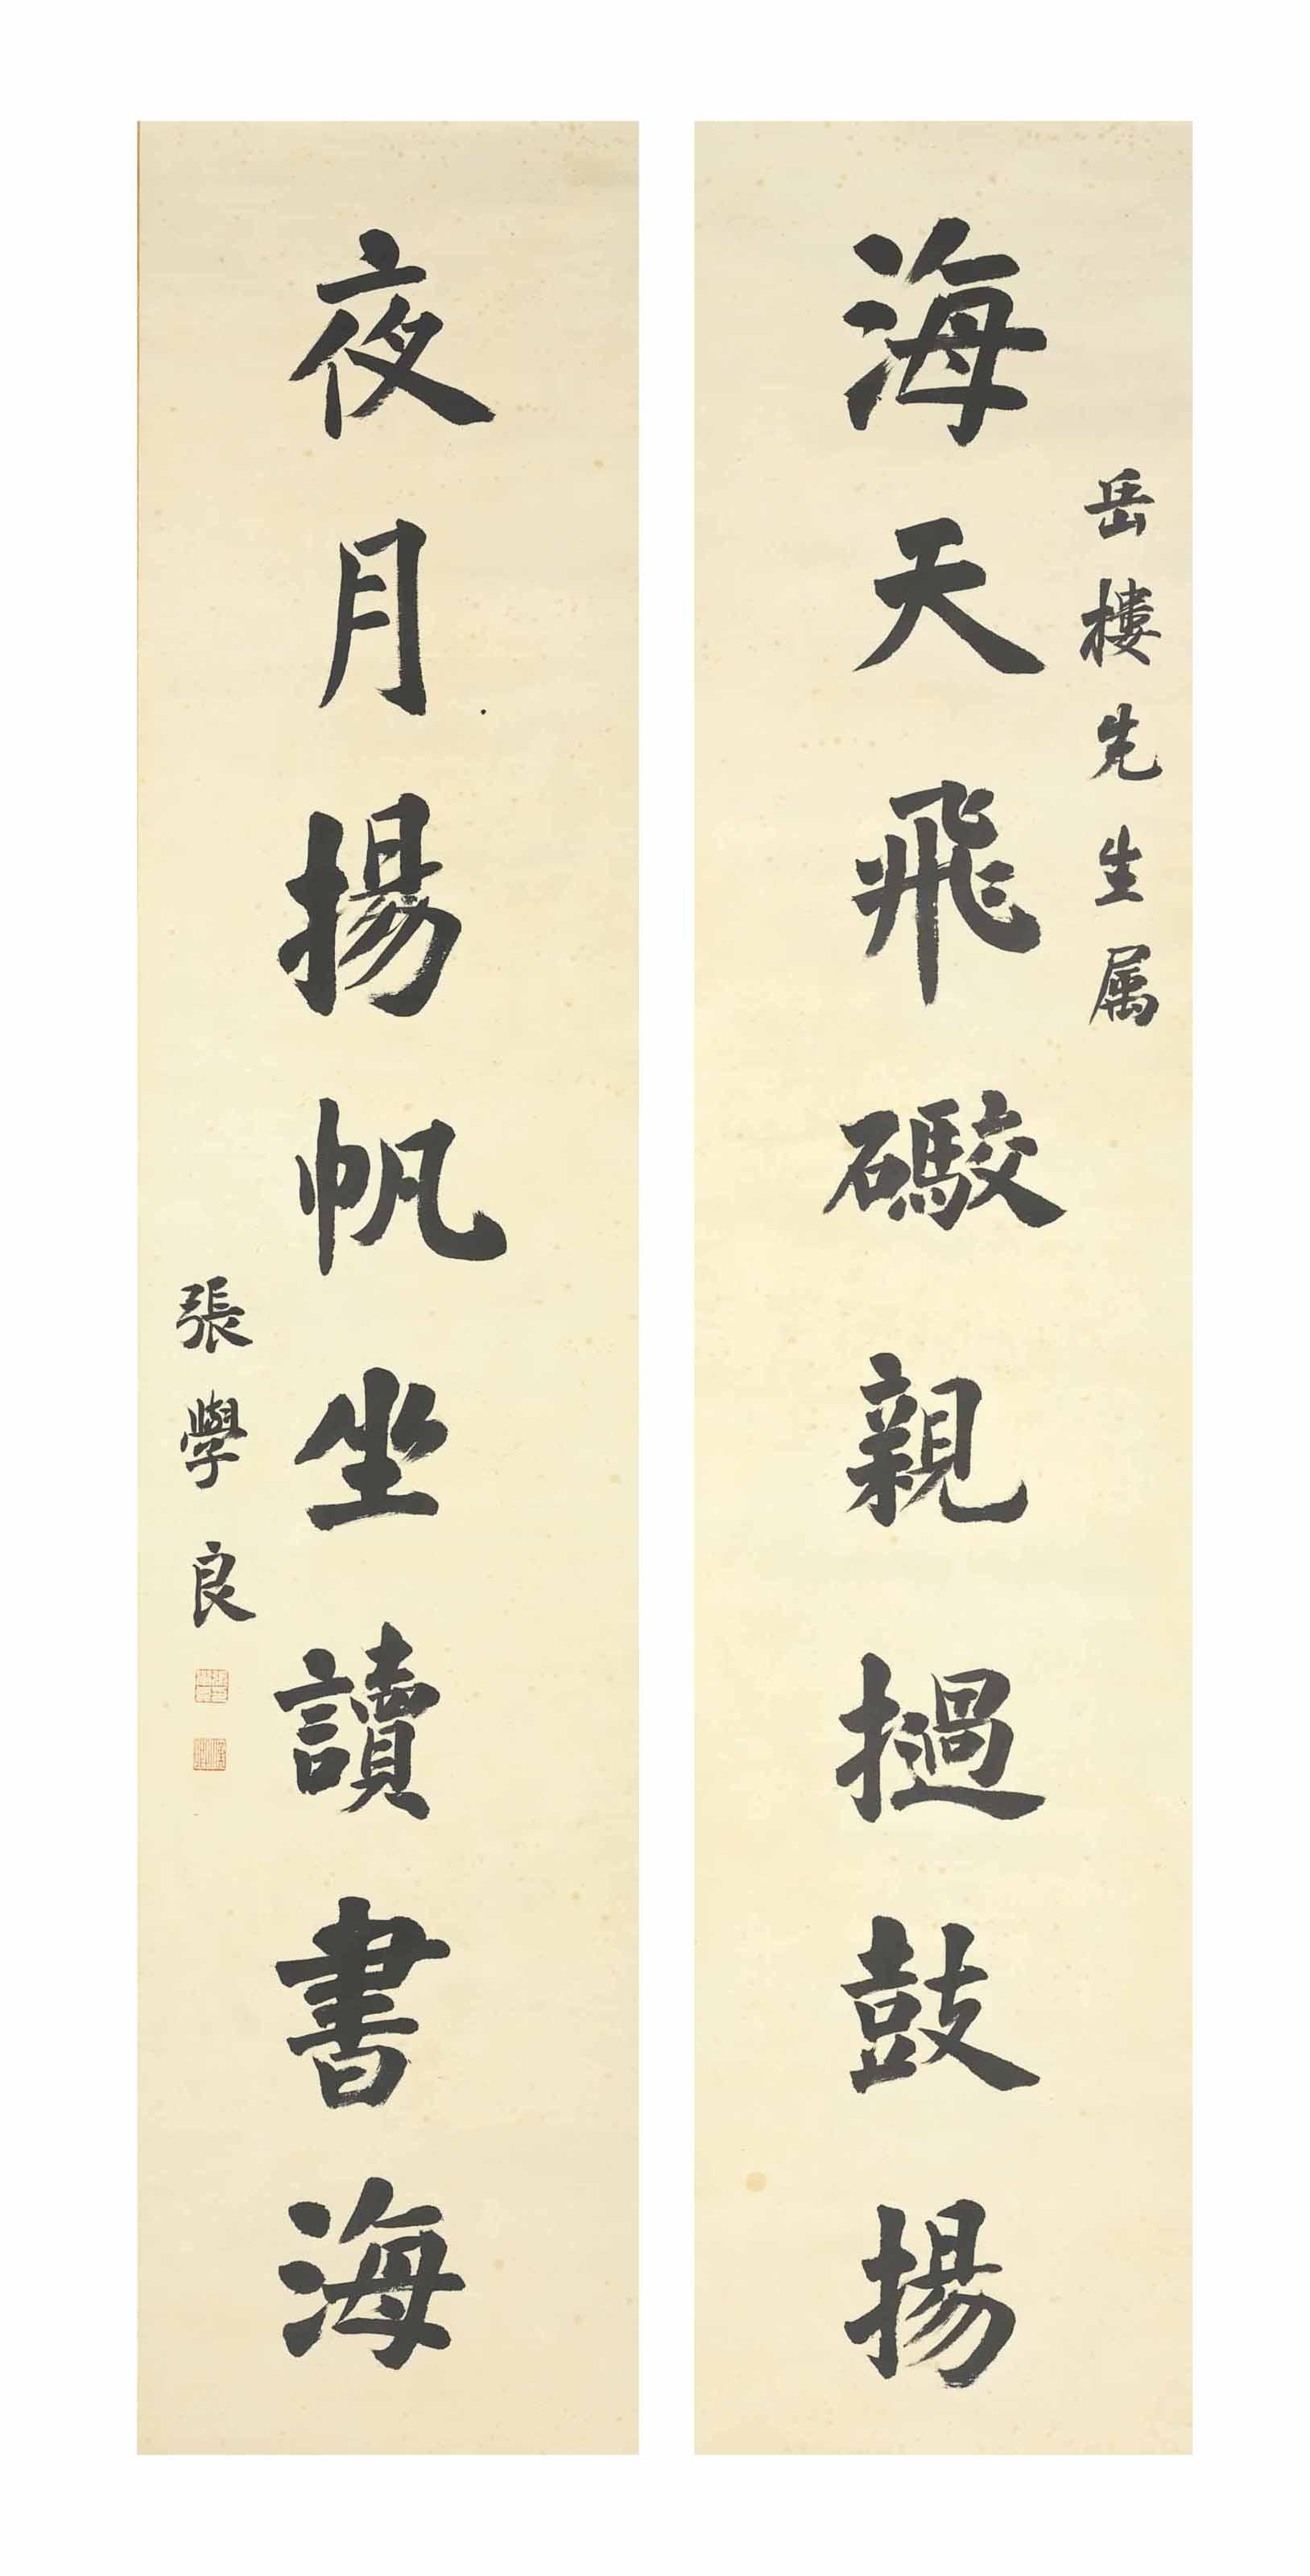 岳樓先生属
海天飛礮親撾鼓揚
夜月揚帆坐讀書海
張學良